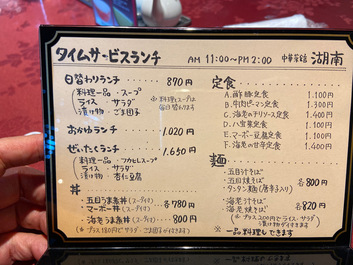 タイムサービスランチ AM 11:00〜PM 2:00 中華菜館 湖南
日替わりランチ ・・・・・・ 870円
料理一品 ・ スープ
ライス ・ サラダ
漬け物 ・ ごま団子
※ 料理とスープは毎日替わります
おかゆランチ ・・・・・ 1.020円
ぜいたくランチ ・・・・ 1.650円
料理一品 ・ フカヒレスープ
ライス ・ サラダ
漬け物 ・ 杏仁豆腐
丼
・五目うま煮丼 (スープ付)
・マーボー丼 (スープ付)
各780円
・海老うま煮丼 (スープ付) ・・・ 800円
(※プラス180円でサラダ、ごま団子が付きます)
定食
A. 酢豚定食 ・・・・・ 1.100円
B. 牛肉ピーマン定食 ・・・ 1.300円
C. 海老のチリソース定食 ・・・ 1.400円
D. 八宝菜定食 ・・・・ 1.100円
E. マーボー豆腐定食 ・・・ 1.100円
F. 海老の甘辛定食 ・・・ 1.400円
麺
・五目汁そば
・五目焼そば
・タンタン麺(唐辛子入り)
各800円
・海老汁そば
・海老焼そば
各820円
(※プラス200円でライス・サラダ
漬け物が付きます)
※ 一品料理もできます